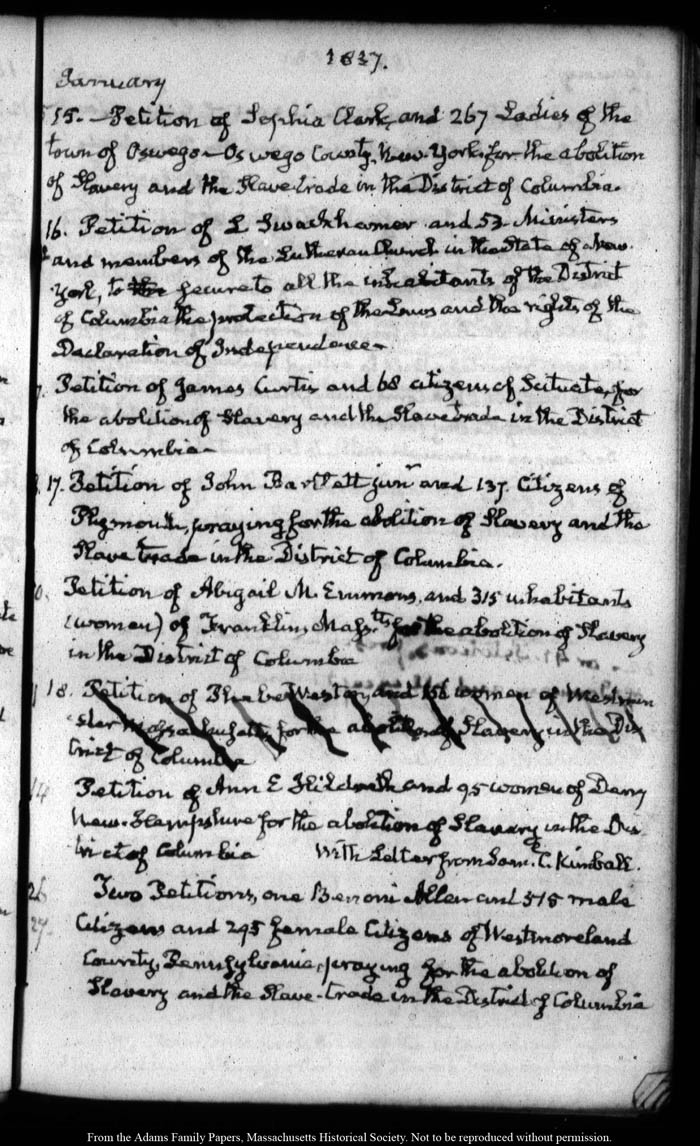 1837.
January
15. Petition of Sophia Clark, and 267 Ladies of the
town of Oswego - Oswego County, New-York, for the abolition
of Slavery and the Slave trade in the District of Columbia.
16. Petition of L Swackhamer and 53 Ministers
and members of the Lutheran Church in the State of New
York, to secure to all the inhabitants of the District
of Columbia the protection of the Laws and the rights of the
Declaration of Independence -
Petition of James Curtis and 68 citizens of Scituate, for
the abolition of Slavery and the Slave trade in the District
of Columbia -
17. Petition of John Bartlett junr. and 137. Citizens of
Plymouth, praying for the abolition of Slavery and the
Slave trade in the District of Columbia.
Petition of Abigail M. Emmons, and 315 inhabitants
(women) of Franklin, Massts. for the abolition of Slavery
in the District of Columbia
18. Petition of Phoebe Weston, and 156 women of Westmin
ster Massachusetts, for the abolition of Slavery in the Dis
trict of Columbia
14 Petition of Ann E Hildreth and 95 women of Derry
New-Hampshire for the abolition of Slavery in the Dis-
trict of Columbia With Letter from Saml. C. Kimball.
26 Two Petitions, one Benoni Allen and 515 male
27 Citizens and 295 female Citizens of Westmoreland
County, Pennsylvania, praying for the abolition of
Slavery and the Slave-trade in the District of Columbia
From the Adams Family Papers, Massachusetts Historical Society. Not to be reproduced without permission.